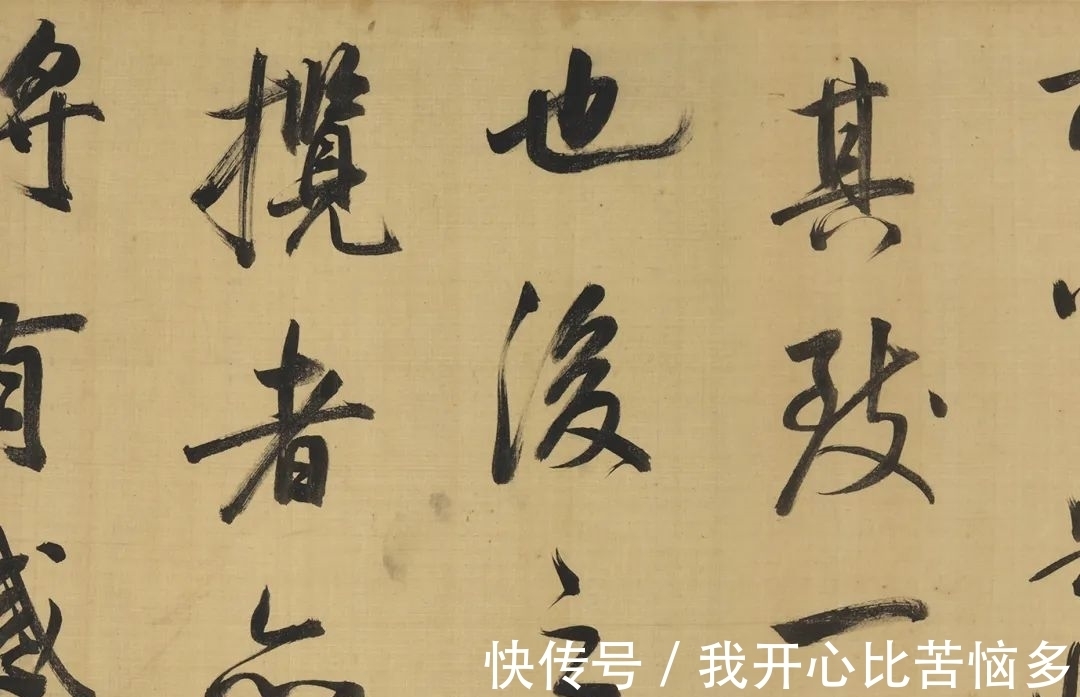 其致一
也後之
攬者亦
將有感
快传号 / 我开心比苦恼多